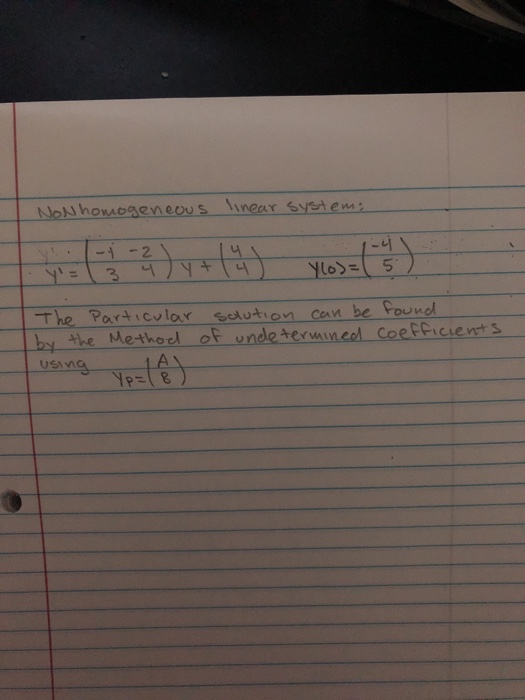 NoNhomogeneous linear system:
y' = (-1 -2
3 4) y + (4
4) y(0) = (-4
5)
The Particular solution can be found
by the Method of undetermined coefficients
using yp = (A
B)